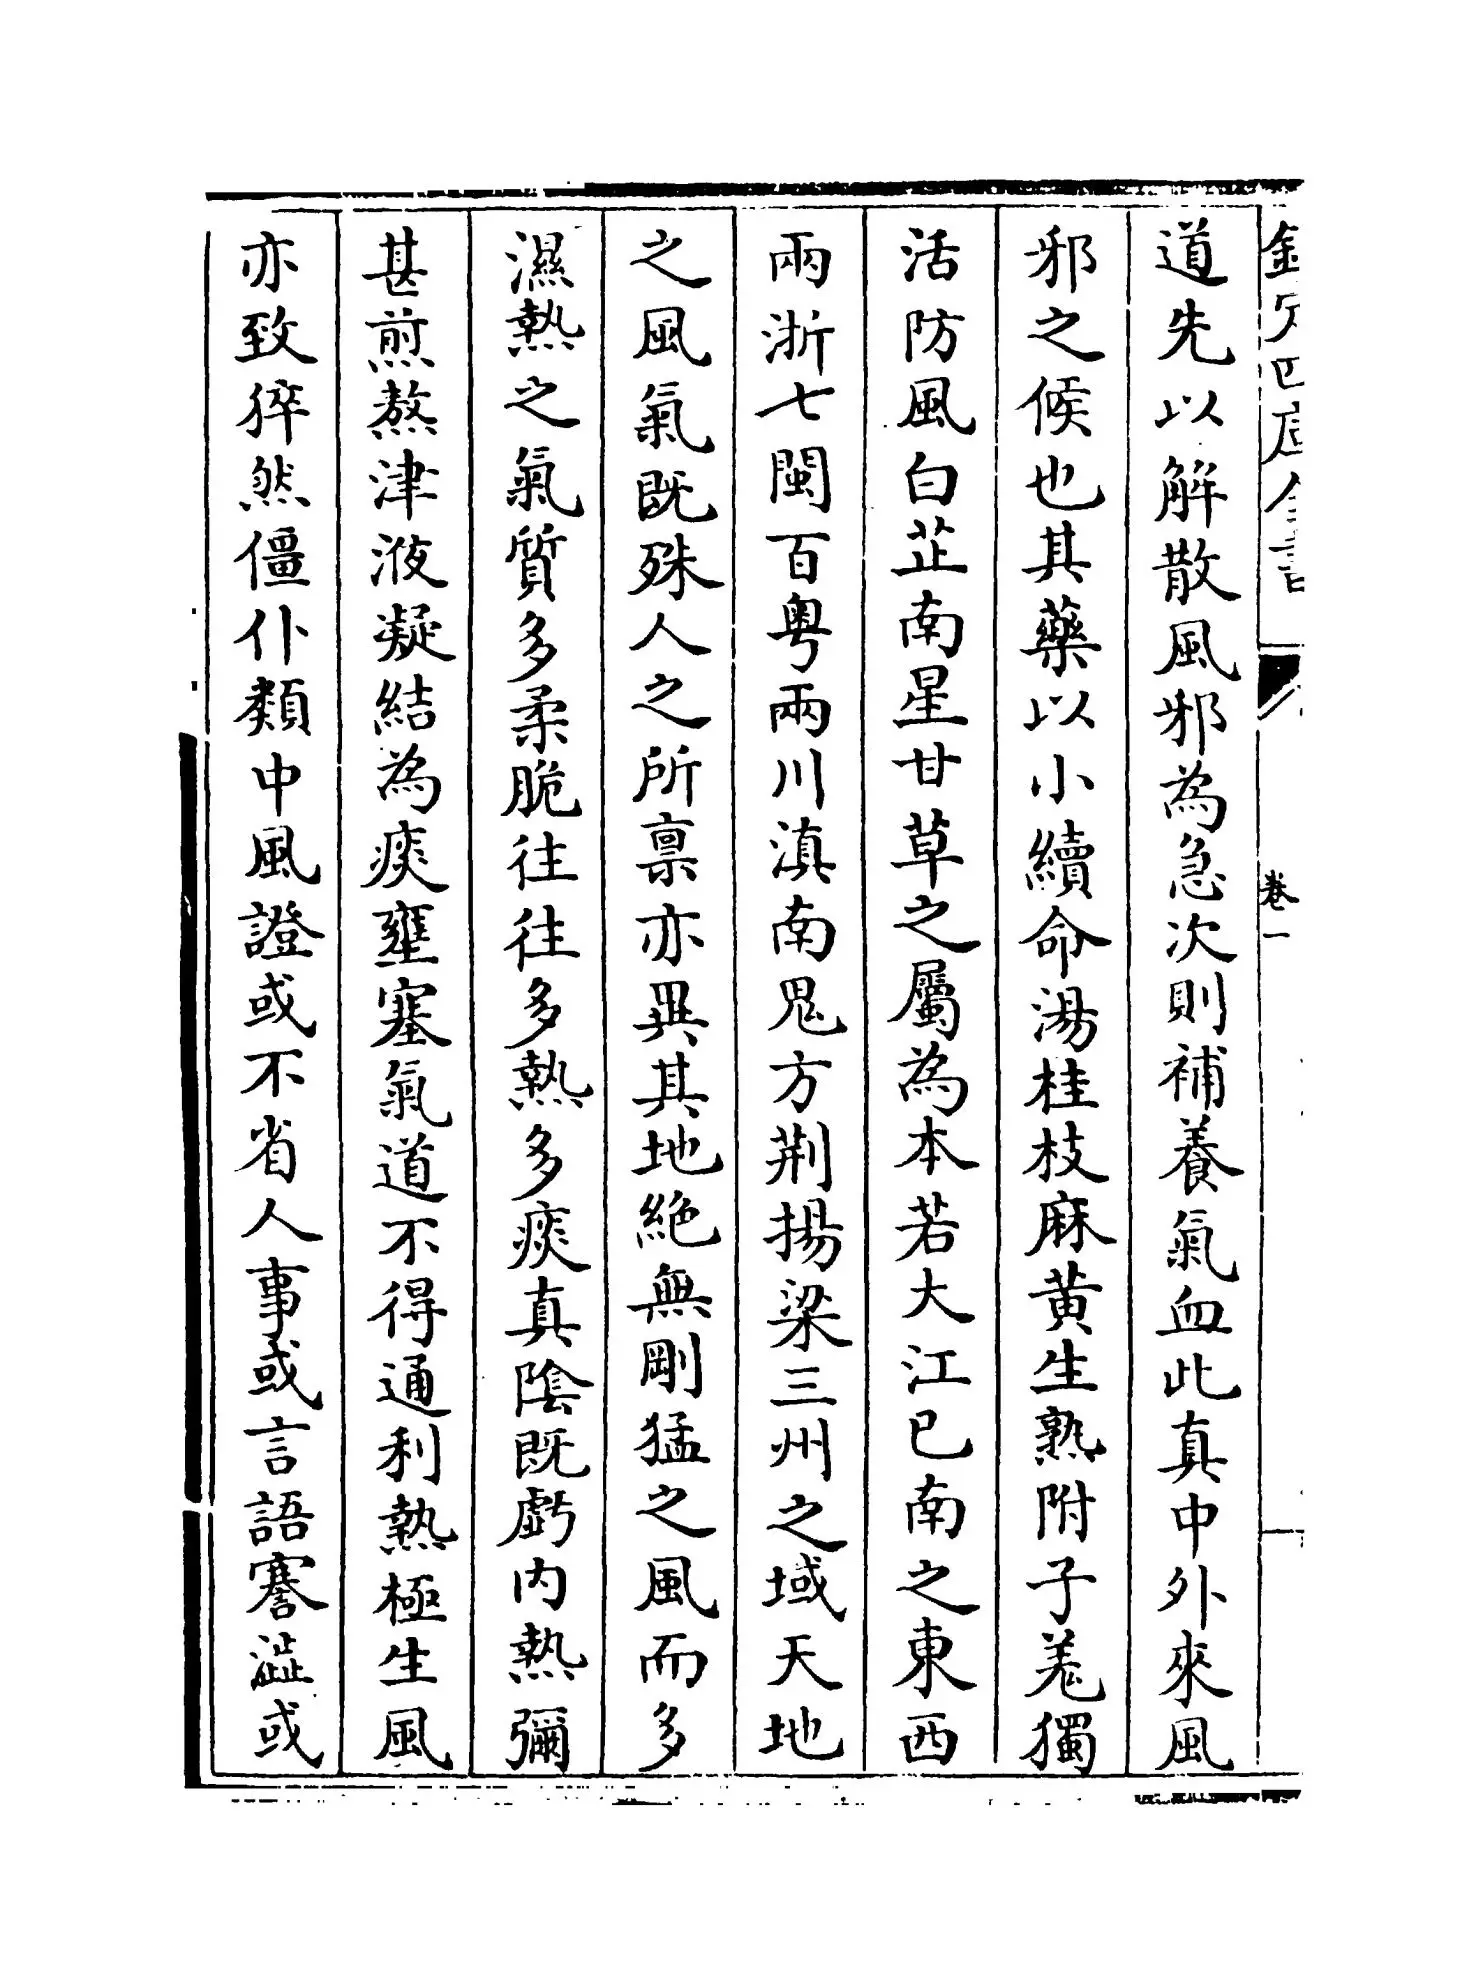 欽定四庫全書
卷一
道先以解散風邪為急次則補養氣血此真中外來風
邪之候也其藥以小續命湯桂枝麻黄生熟附子羗獨
活防風白芷南星甘草之屬為本若大江已南之東西
兩浙七閩百粤兩川滇南鬼方荆揚梁三州之域天地
之風氣既殊人之所禀亦異其地絶無剛猛之風而多
濕熱之氣質多柔脆往往多熱多痰真陰既虧内熱彌
甚煎熬津液凝結為痰壅塞氣道不得通利熱極生風
亦致猝然僵仆類中風證或不省人事或言語謇澁或